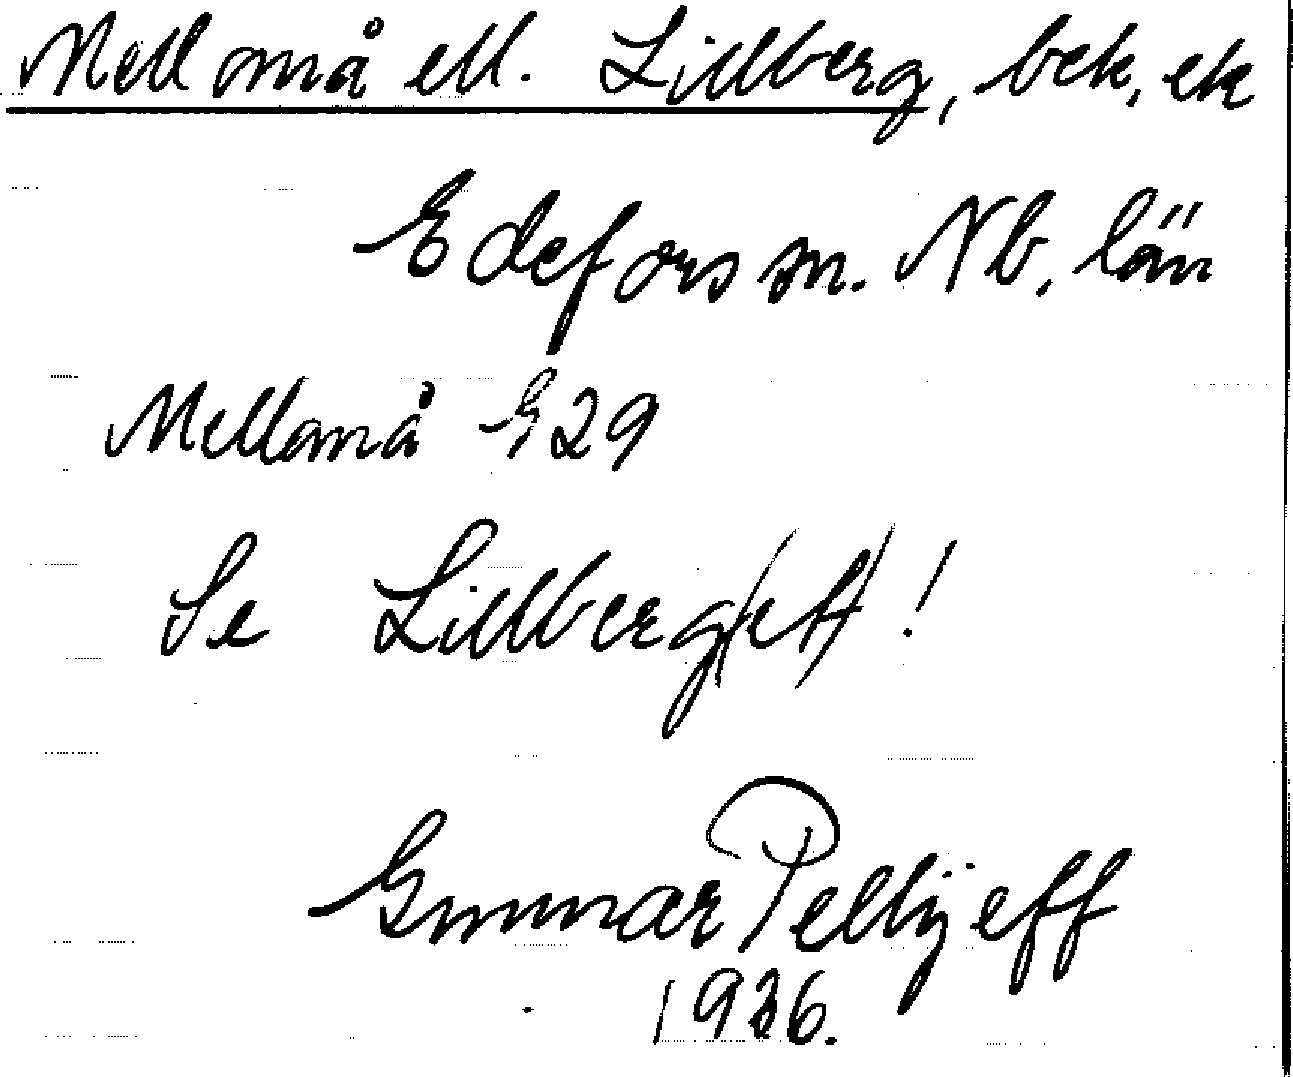 Mellanå ell. Lillberg, bek, ek
Edefors sn. Nb. län
Mellanå E29
Se Lillberg(et)!
Gunnar Pellijeff
1936.